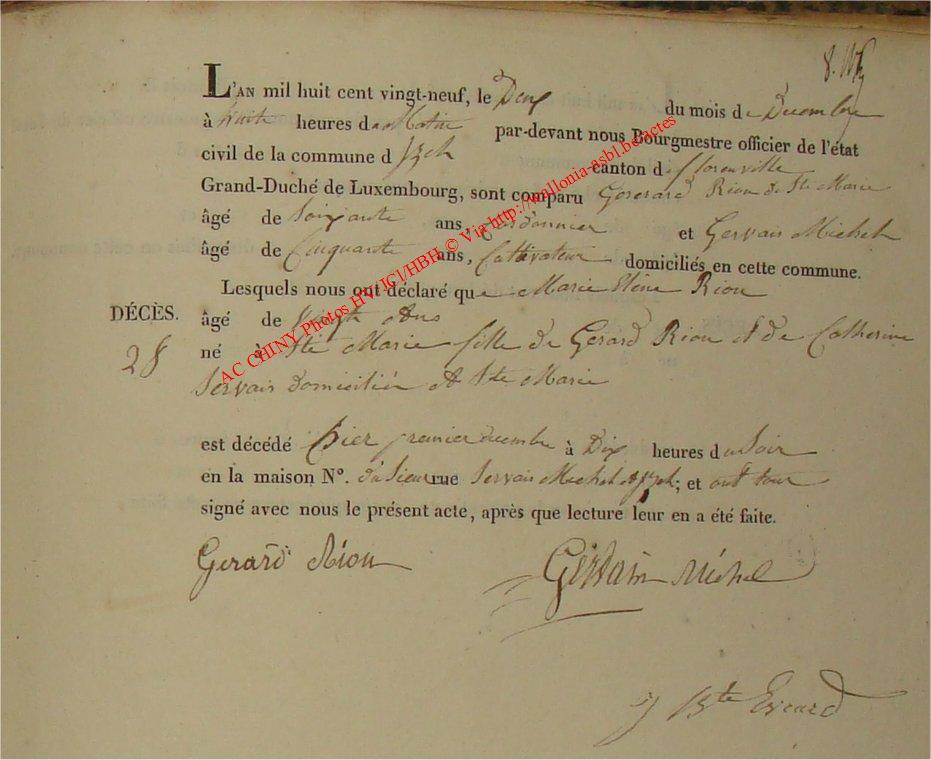 L'AN mil huit cent vingt-neuf, le Deux du mois de Decembre
à huit heures du Matin par-devant nous Bourgmestre officier de l'état
civil de la commune d'Izel canton de florenville
Grand-Duché de Luxembourg, sont comparu Gererard Rion de Ste Marie
âgé de Soixante ans, Cordonnier et Gervais Michel
âgé de Cinquante ans, Cultivateur domiciliés en cette commune.
Lesquels nous ont déclaré que Marie Rion
DÉCÈS.
âgé de Vingt Ans
28
né à Ste Marie fille de Gerard Rion et de Catherine
Servais domiciliée à Ste Marie
est décédé hier premier decembre à Dix heures du Soir
en la maison N°. du Sieur rue Servais Michel à Izel; et ont tous
signé avec nous le présent acte, après que lecture leur en a été faite.
Gerard Rion
Gervais Michel
j Bte Evrard
AC CHINY Photos HV/JCI/HBH © Via http://wallonia-asbl.be/actes